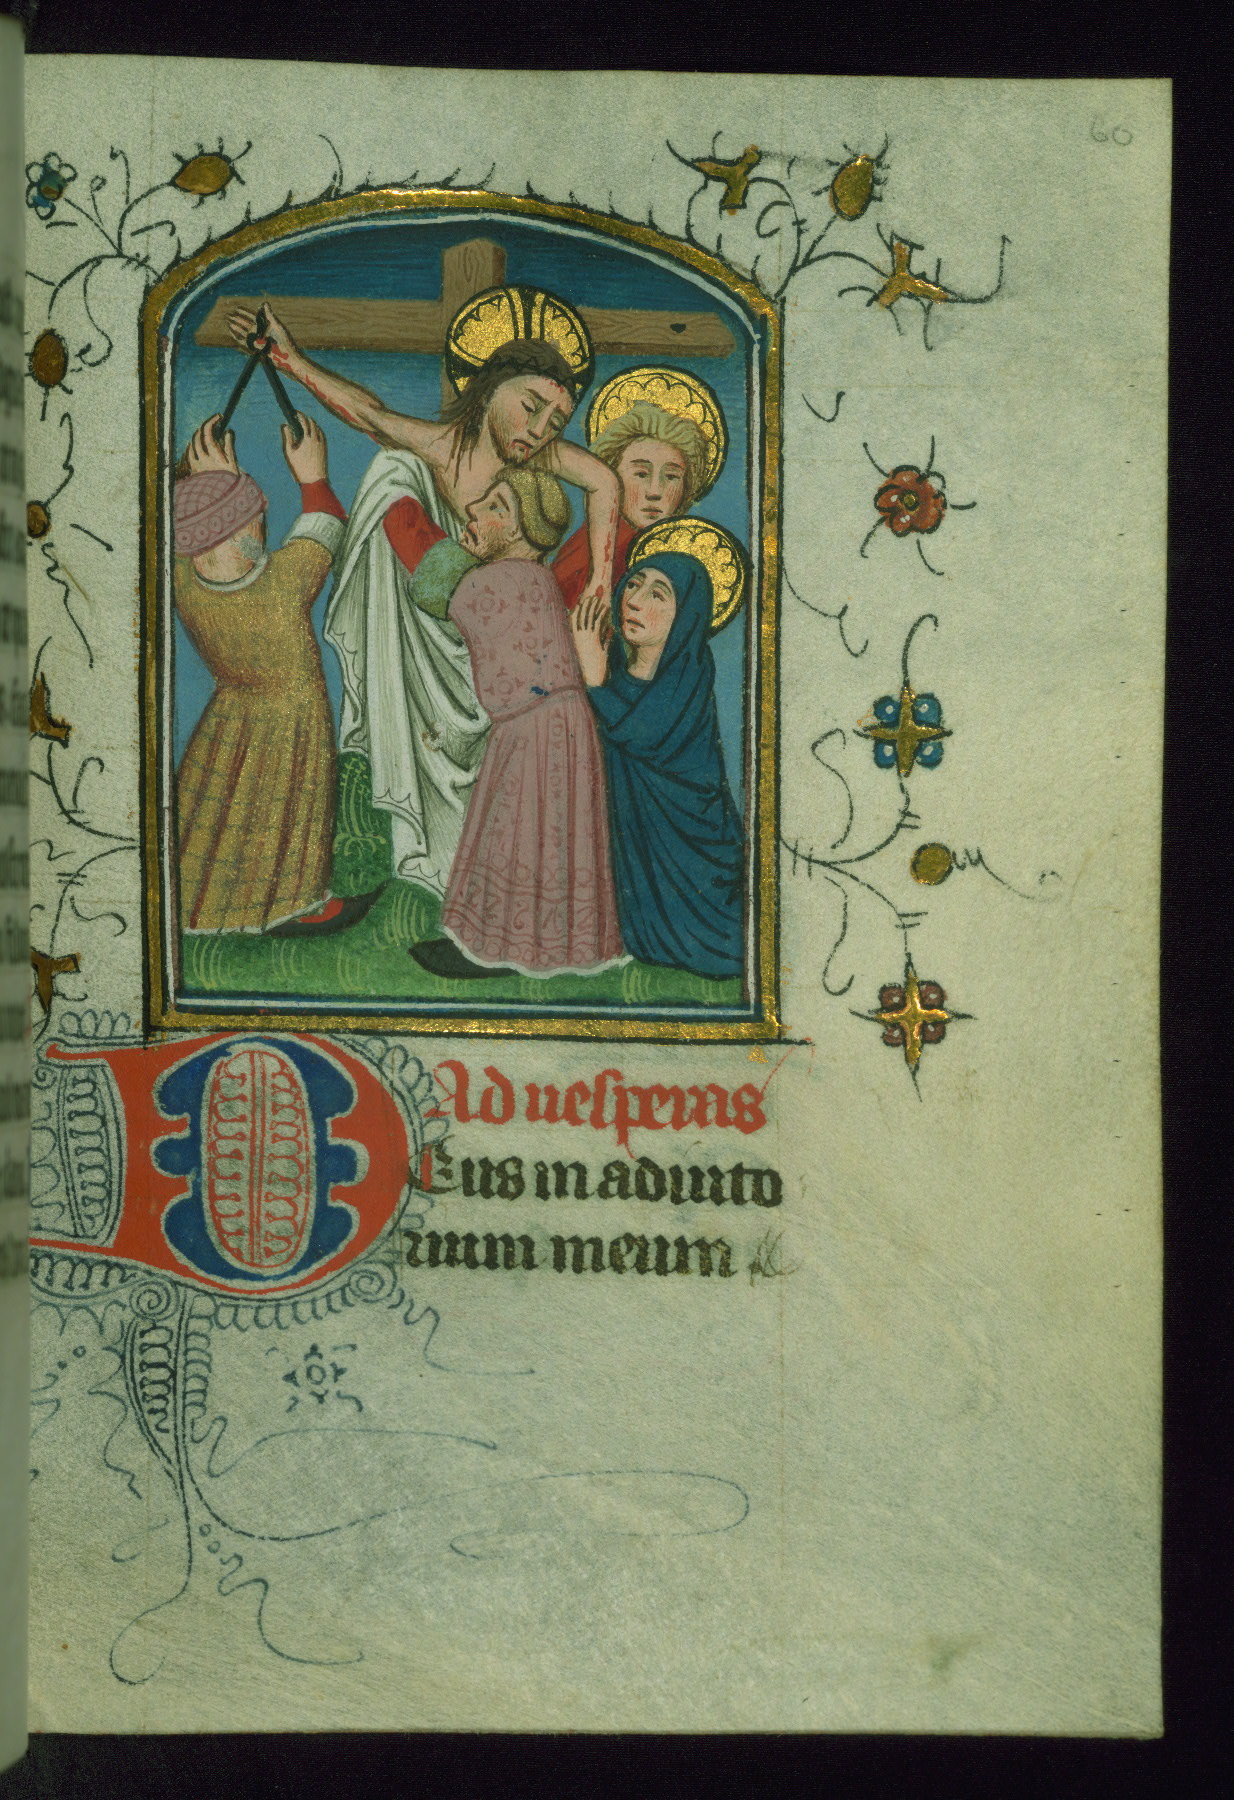 60
Ad uesperas
DEus in adiuto
rium meum